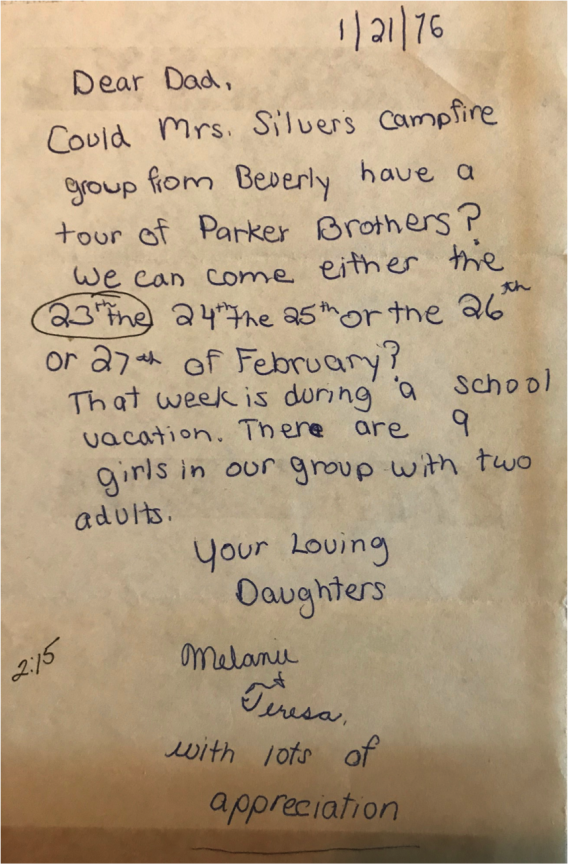 1/21/76
Dear Dad,
Could Mrs. Silvers Campfire
group from Beverly have a
tour of Parker Brothers?
We can come either the
23rth the 24th the 25th or the 26th
or 27th of February?
That week is during a school
vacation. There are 9
girls in our group with two
adults.
Your Loving
Daughters
2:15
Melanie
+
Teresa,
with lots of
appreciation